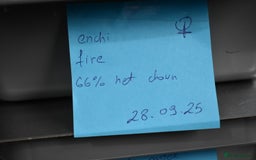 enchi ♀
fire
66% het clown
28.09.25